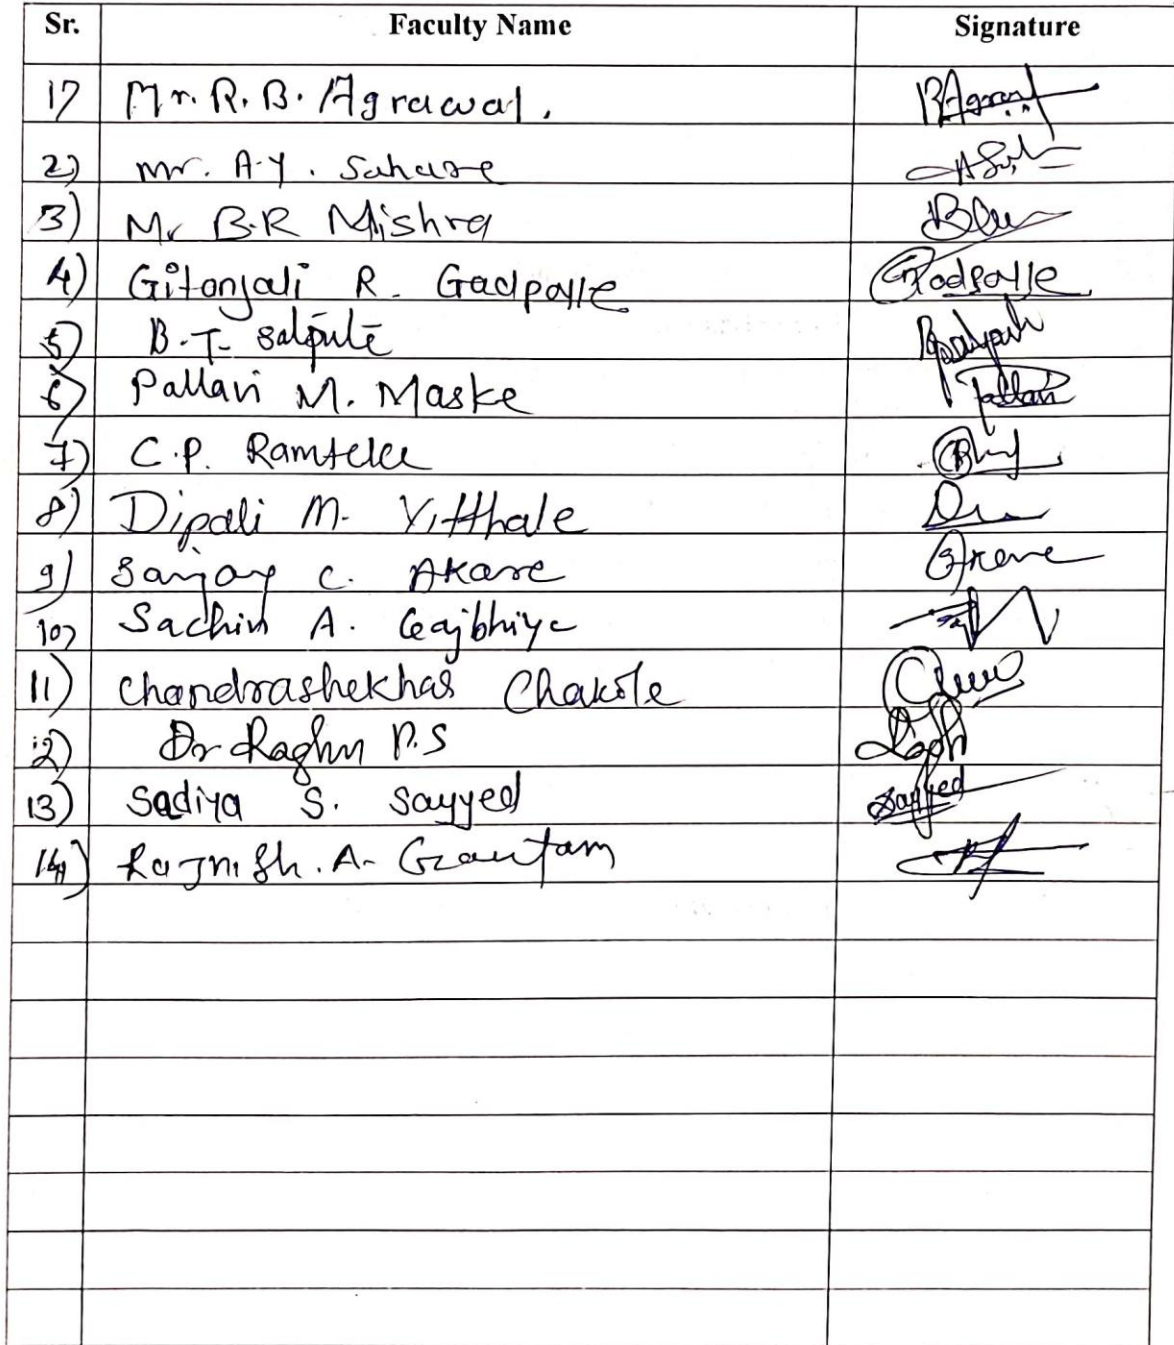 Sr. Faculty Name Signature
1) Mr. R. B. Agrawal. BAgrawal
2) Mr. A.Y. Sahare
3) Mr B.R Mishra
4) Gitanjali R. Gadpayle Gadpayle
5) B.T. Salpute
6) Pallavi M. Maske Pallavi
7) C.P. Ramteke
8) Dipali M. Vitthale
9) Sanjay C. Akare
10) Sachin A. Gajbhiye
11) Chandrashekhar Chakole
12) Dr Raghu P.S
13) Sadiya S. Sayyed Sayyed
14) Rajnish. A. Gautam